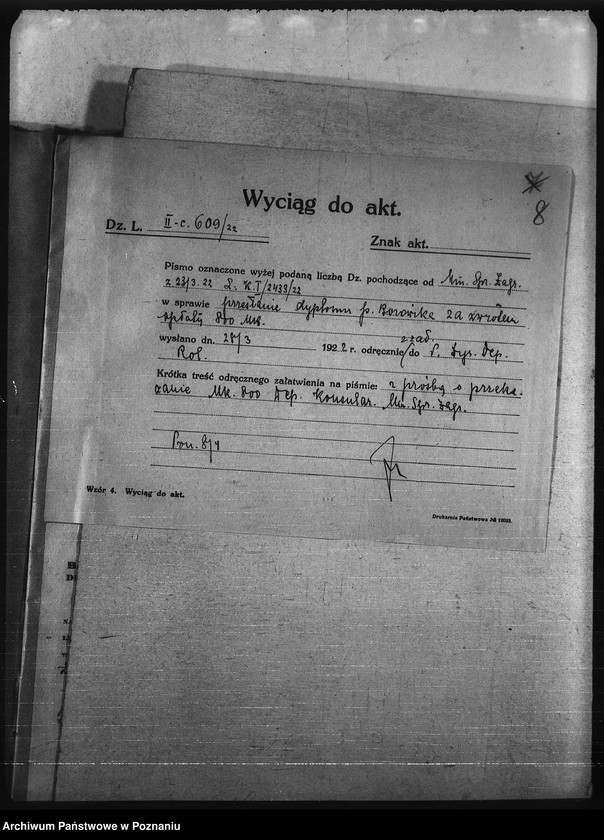 8
Wyciąg do akt.
Dz. L. II-c. 609/22
Znak akt.
Pismo oznaczone wyżej podaną liczbą Dz. pochodzące od Min. Spr. Zagr.
z 23/3. 22 L. K.I/2433/22
w sprawie przesłanie dyplomu p. Borowika za zwrotem
opłaty 800 Mk.
wysłano dn. 28/3 1922 r. odręcznie do P. Dys. Dep.
Rol.
Krótka treść odręcznego załatwienia na piśmie: z prośbą o przeka-
zanie Mk. 800 Dep. Konsular. Min. Spr. Zagr.
8/4
Wzór 4. Wyciąg do akt.
Drukarnia Państwowa №
Archiwum Państwowe w Poznaniu